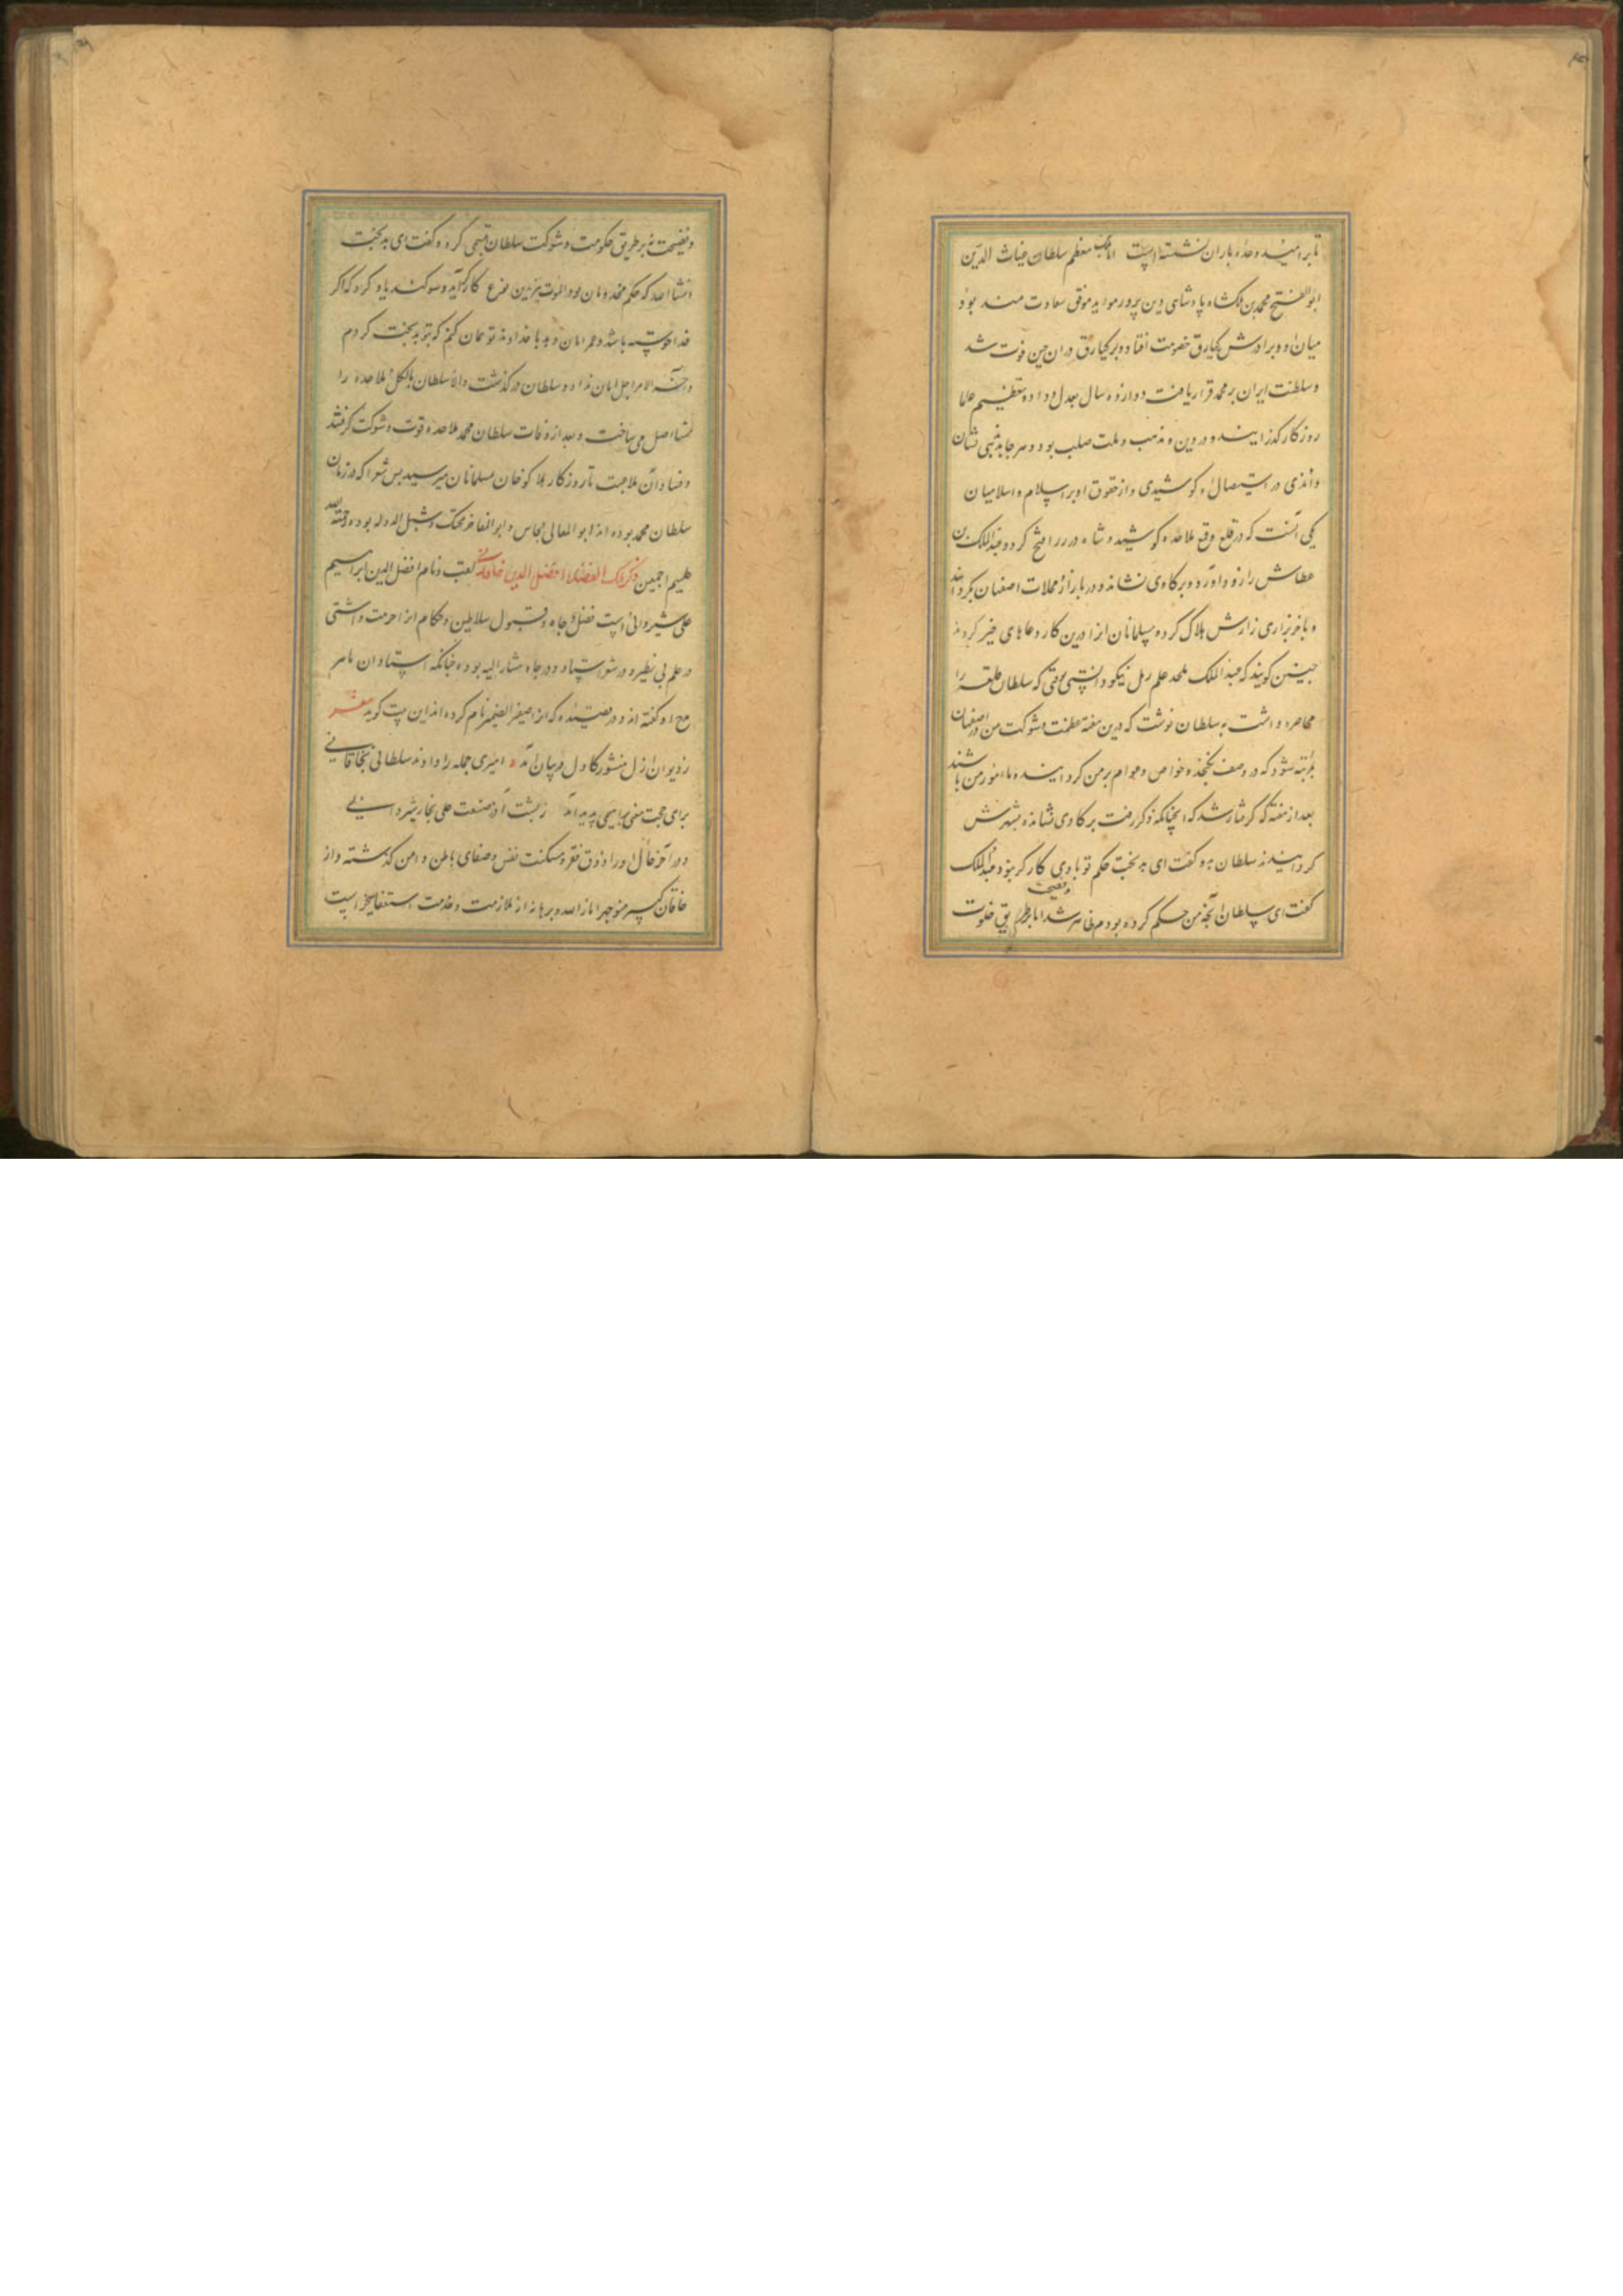 تا بر امید وعده باران نشسته است اما ملک معظم سلطان غیاث الدین
ابو الفتح محمد بن ملکشاه پادشاهی دین پرور موید موفق سعادت مند بود
میان او و برادرش برکیارق خصومت افتاد و برکیارق در آن حین فوت شد
و سلطنت ایران بر محمد قرار یافت دوازده سال بعدل و داد و تعظیم علما
روزکار کذرانید و در دین و مذهب و ملت صلب بود و هر جا بد مذهبی نشان
دادندی در استیصال او کوشیدی و از حقوق او بر اسلام و اسلامیان
یکی آنست که در قلع و قمع ملاحده کوشید و شاه در را فتح کرد و عبدالملک بن
عطاش را فرود آورد و بر کاوی نشاند و در بازار و محلات اصفهان بکردانید
و باخر بزاری زارش هلاک کرد و مسلمانان او را درین کار دعاهای خیر کردند
چنین کویند که عبد الملک ملحد علم رمل نیکو دانستی وقتی که سلطان قلعه را
محاصره داشت به سلطان نوشت که درین هفته عظمت و شوکت من در اصفهان
بمرتبه شود که در وصف نکنجد و خواص و عوام بر من کرد آیند و مامور من باشند
بعد از هفته که کرفتار شد که انچنانکه ذکر رفت بر کاوی نشانده بشهرش
کردانیدند سلطان بدو کفت ای بد بخت حکم تو باری کارکر نبود عبد الملک
کفت ای سلطان آنچه من حکم کرده بودم ظاهر شد اما بر طریق خلوت
و فضیحت
و فضیحت نه بر طریق حکومت و شوکت سلطان تبسمی کرد و کفت ای بد بخت
انشا الله که حکم مخدومان تو در الموت نیز بدین نوع کارکر آید و سوکند یاد کرد که اکر
خدا خواسته باشد و عمر امان دهد با خداوند تو همان کنم که بتو بد بخت کردم
و آخر الامر اجل امان نداد و سلطان در کذشت و الا سلطان بالکل ملاحده را
مستاصل می ساخت و بعد از وفات سلطان محمد ملاحده قوت و شوکت کرفتند
و فساد آن ملاحدت تا روزکار هلاکو خان بمسلمانان میرسید پس شعرا که در زمان
سلطان محمد بوده اند ابو المعالی نحاس و ابو المفاخر و شبل الدوله بوده رحمة الله
علیهم اجمعین ذکر ملک الفضلا افضل الدین خاقانی لقب و نام افضل الدین ابراهیم
علی شیروانی است فضل و جاه و قبول سلاطین و حکام او را حرمت داشتی
در علم بی نظیر و در شعر استاد و در جاه مشار الیه بوده چنانکه استادان ماهر
مدح او کفته اند و در قصیده که از اصفیر الضمیر نام کرده اند این بیت کوید شعر
ز دیوان ازل منشور کاول در میان آمد امیری جمله را دادند سلطانی بخاقانی
برای حجت معنی براهیمی پدید آمد ز پشت آذر صنعت علی نجار شیروانی
و در آخر حال او را ذوق فقر و مسکنت نفس و صفای باطن دامن کیر کشته و از
خاقان کبیر منوچهر انار الله برهانه از ملازمت و خدمت استعفا میخواست